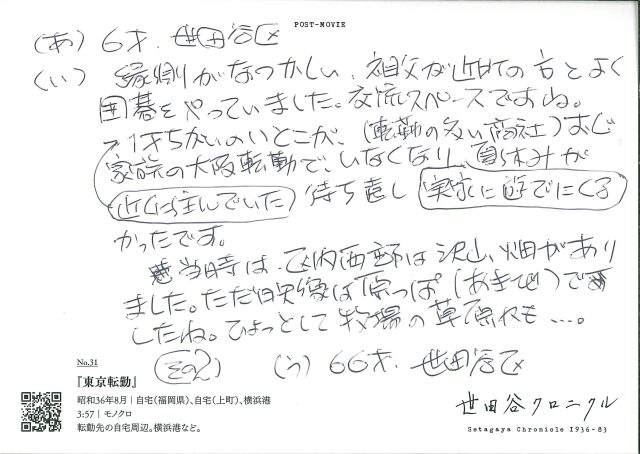 POST-MOVIE
(あ) 6才、世田谷区
(い) 縁側がなつかしい、祖父が近所の方とよく
囲碁をやっていました。交流スペースですね。
1才ちがいのいとこが、(転勤の多い商社)おじ
家族の大阪転勤で、いなくなり、夏休みが
近くに住んでいた 待ち遠し 実家に遊びにくる
かったです。
当時は、区内西部は沢山、畑があり
ました。ただ映像は原っぱ(あきち)で
したね。ひょっとして牧場の草原かも…。
その2 (う) 66才、世田谷区
No.31
『東京転勤』
昭和36年8月|自宅(福岡県)、自宅(上町)、横浜港
3:57|モノクロ
転勤先の自宅周辺。横浜港など。
世田谷クロニクル
Setagaya Chronicle 1936-83